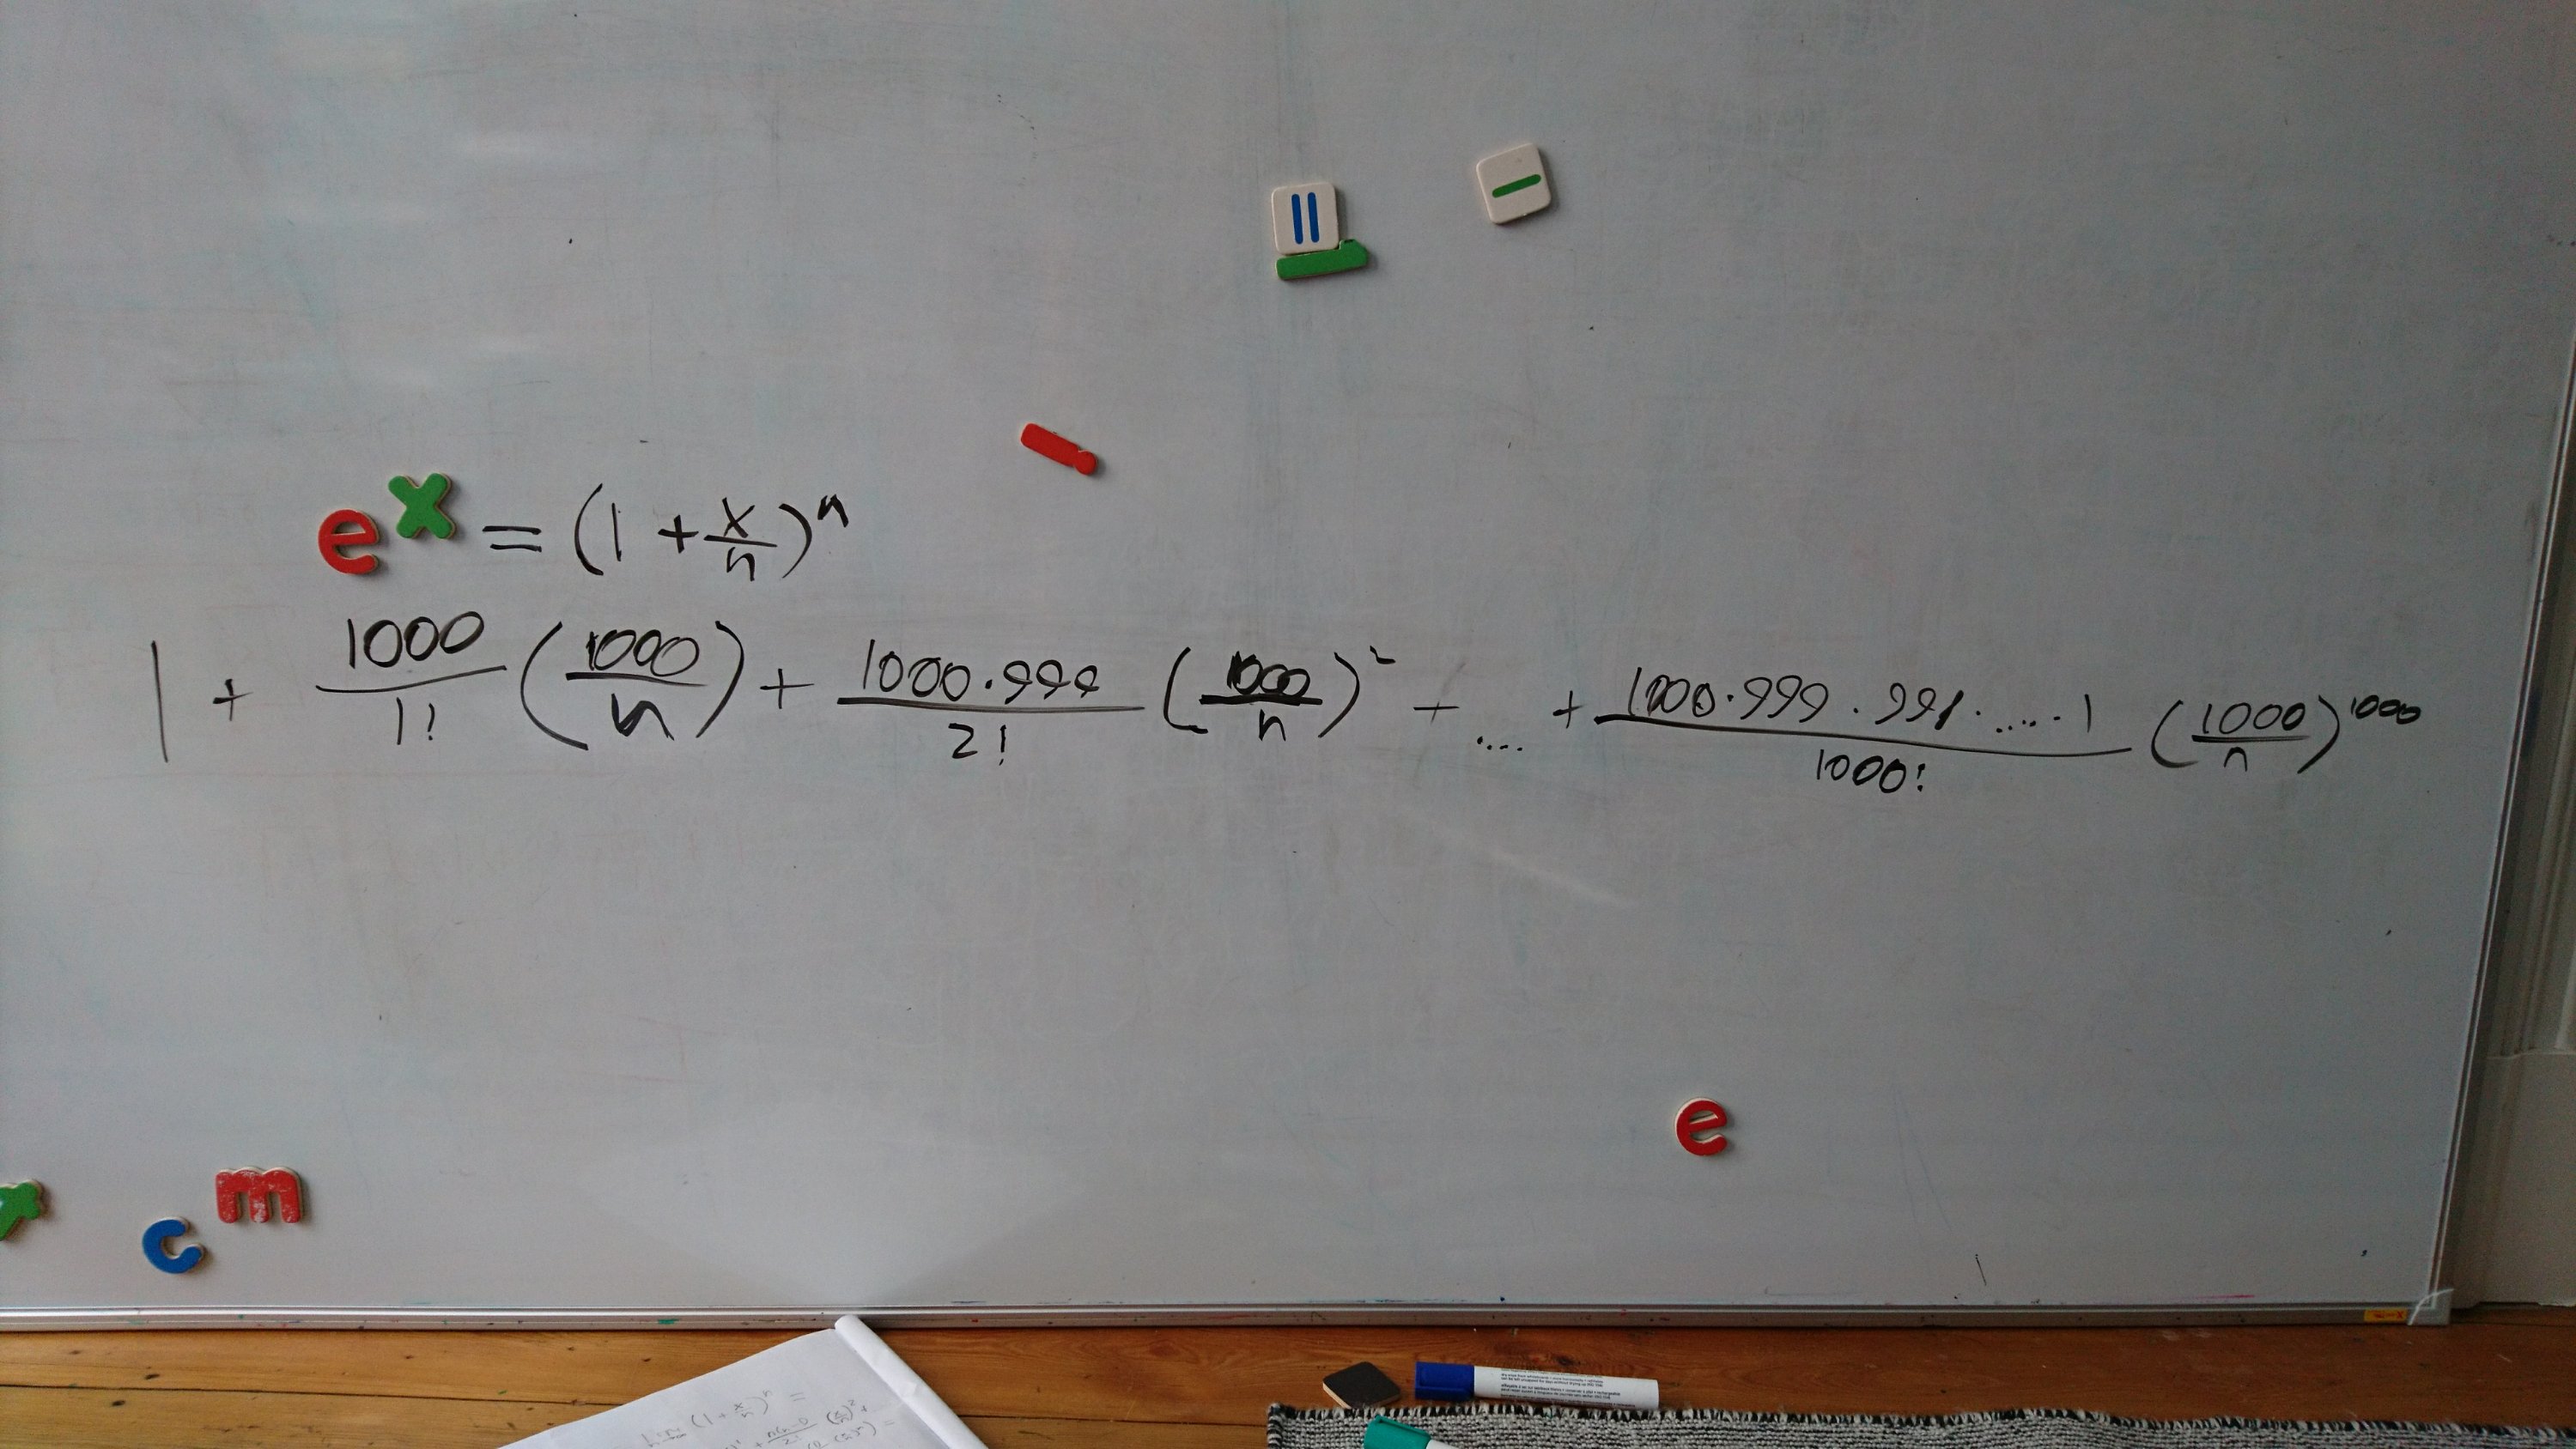 e^x = (1 + x/n)^n
1 + 1000/1! (1000/n) + 1000·999/2! (1000/n)^2 + .... + 1000·999·991·....·1/1000! (1000/n)^1000
e
m
c
(1 + x/n)^n =